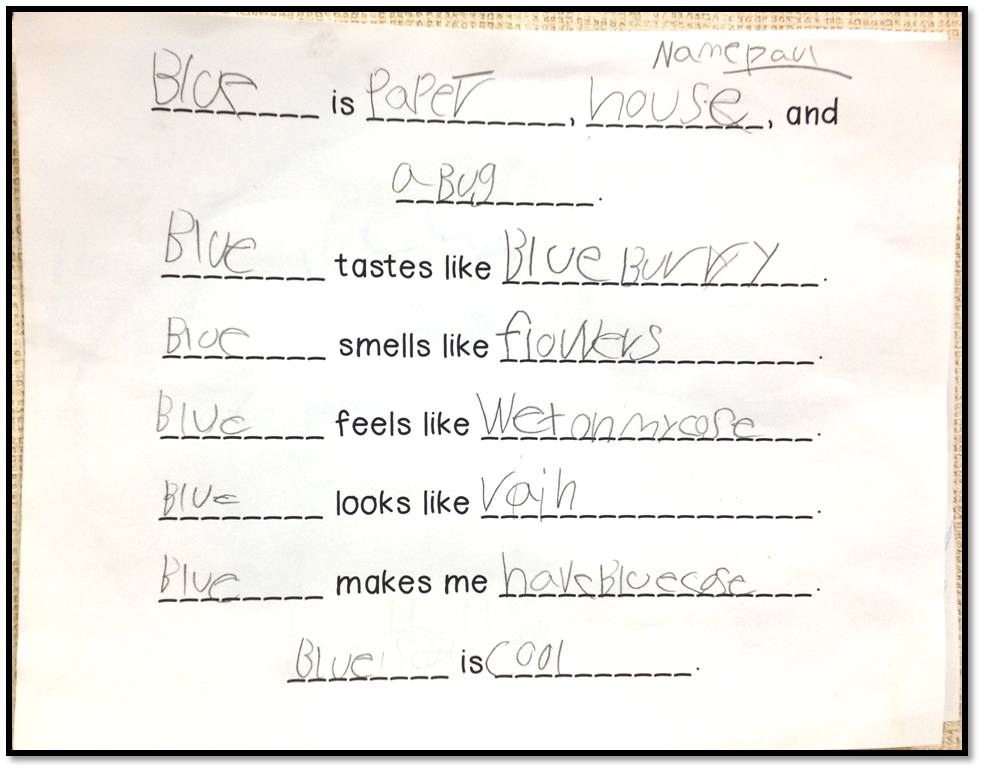 Name paul
Blue is PaPer, house, and
a Bug.
Blue tastes like Blue Burry.
Blue smells like flowers.
Blue feels like Wet on my cose.
Blue looks like Vain.
Blue makes me have Blue cose.
Blue is cool.